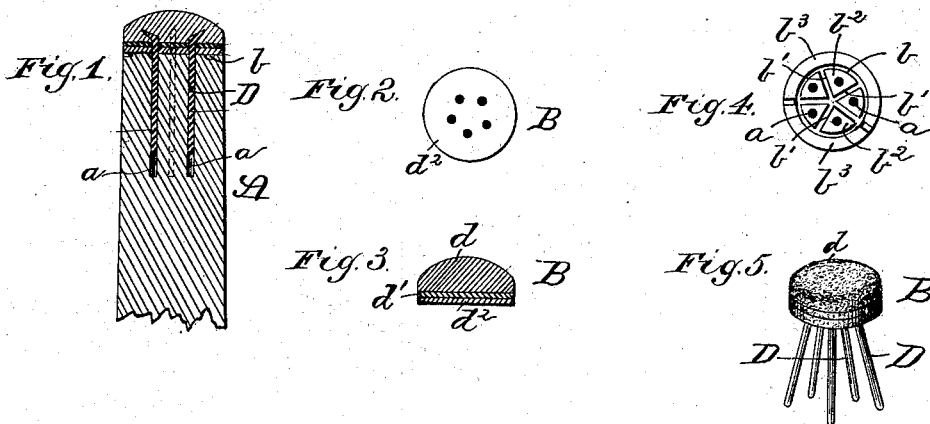 Fig. 1.
b
D
a
a
A
Fig. 2.
B
d²
Fig. 3.
d
B
d'
d²
Fig. 4.
b³
b²
b
b'
b'
a
a
b'
b²
b³
Fig. 5.
d
B
D
D